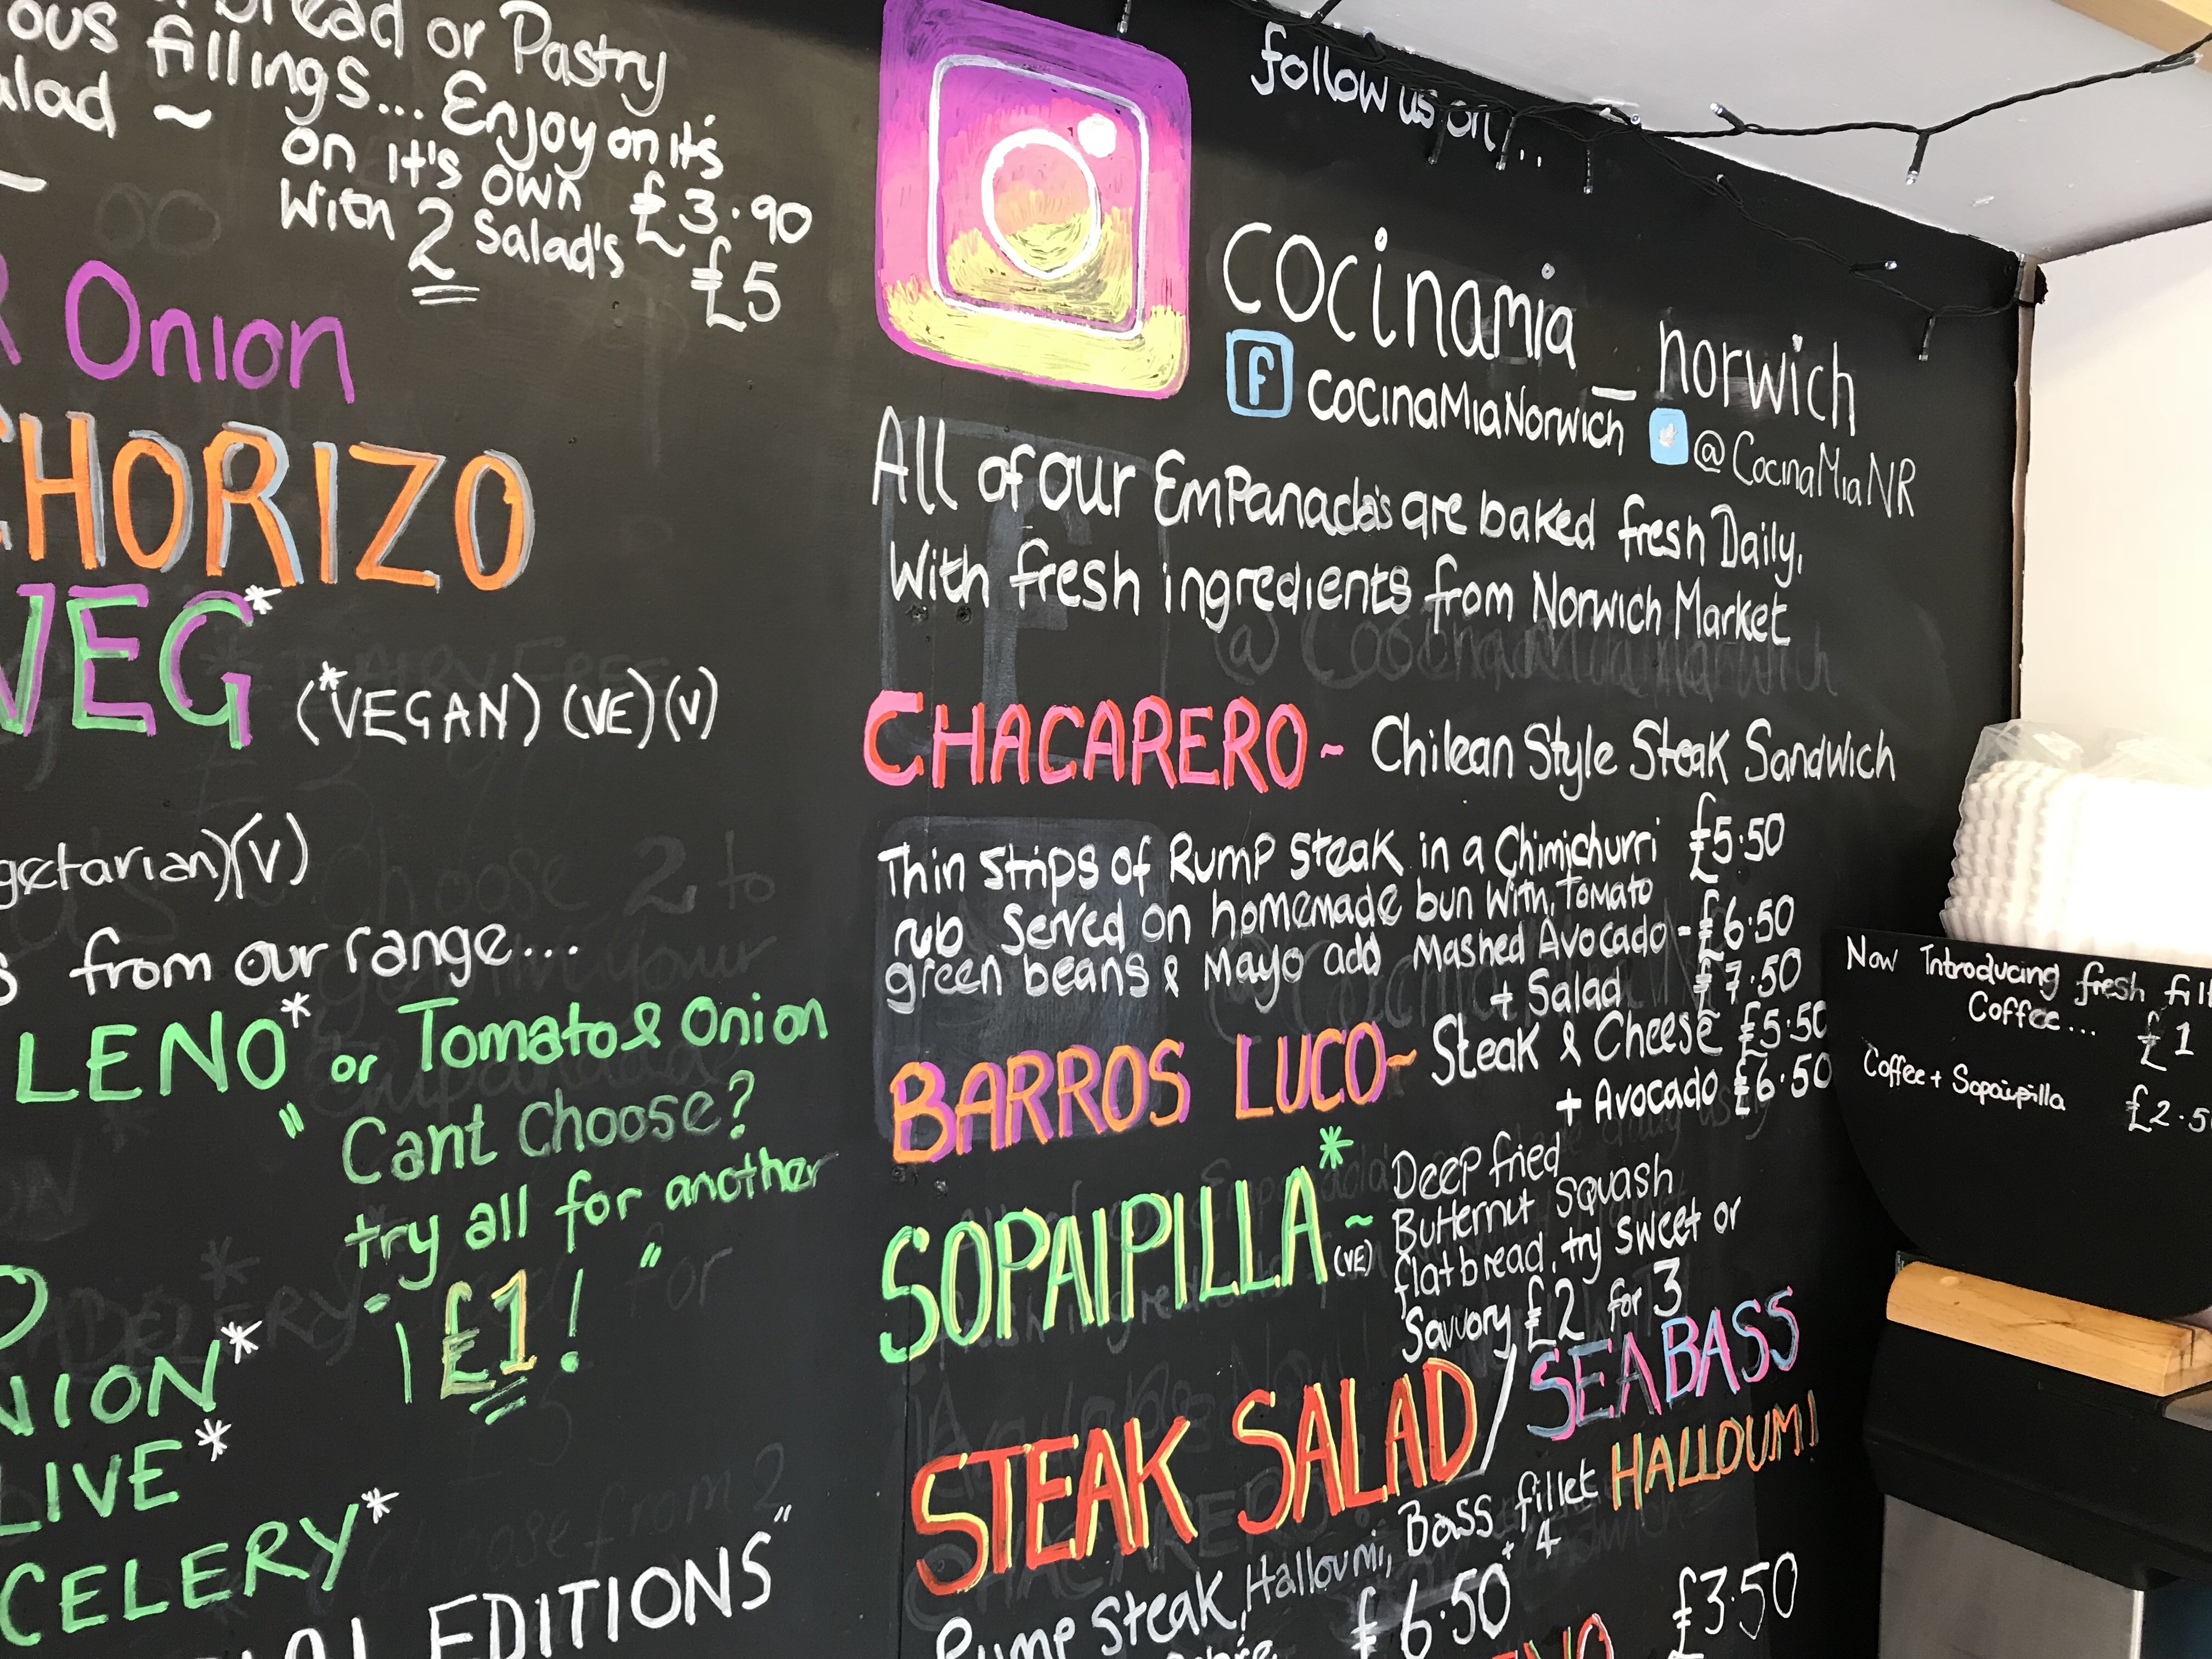 or Pastry
fillings... Enjoy on it's
on it's own £3.90
With 2 Salad's £5
Onion
CHORIZO
VEG* (*VEGAN) (VE) (V)
(V)
from our range...
LENO* or Tomato & Onion
"Cant Choose?
try all for another
£1!"
CELERY*
EDITIONS"
follow us on...
cocinamia_norwich
f CocinaMiaNorwich @CocinaMiaNR
All of our EmPanada's are baked fresh Daily,
With fresh ingredients from Norwich Market
CHACARERO ~ Chilean Style Steak Sandwich
Thin strips of Rump Steak in a Chimichurri £5.50
rub served on homemade bun with, Tomato
green beans & Mayo add Mashed Avocado - £6.50
+ Salad £7.50
BARROS LUCO ~ Steak & Cheese £5.50
+ Avocado £6.50
SOPAIPILLA* ~ (VE) Deep fried
Butternut Squash
flatbread, try sweet or
Savvory £2 for 3
STEAK SALAD / SEABASS
HALLOUMI
Rump Steak, Halloumi, Bass fillet
£6.50 + 4
£3.50
Now Introducing fresh
Coffee... £1
Coffee + Sopaipilla £2.5